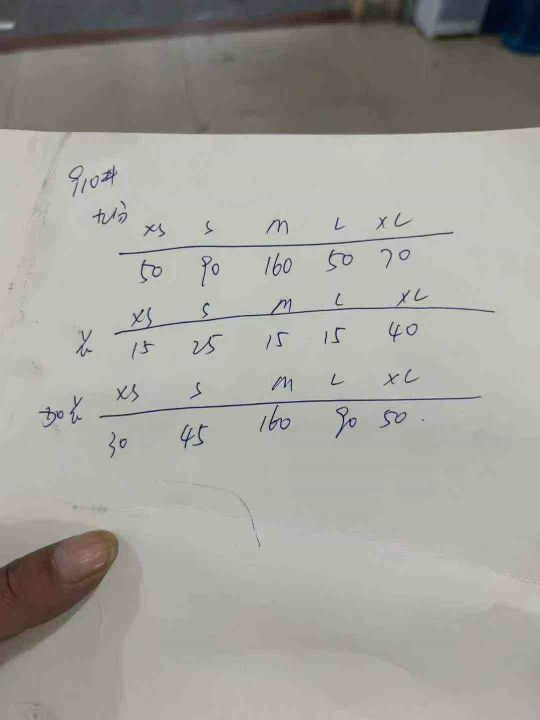 910#
XS S M L XL
50 90 160 50 70
XS S M L XL
15 25 15 15 40
XS S M L XL
30 45 160 90 50